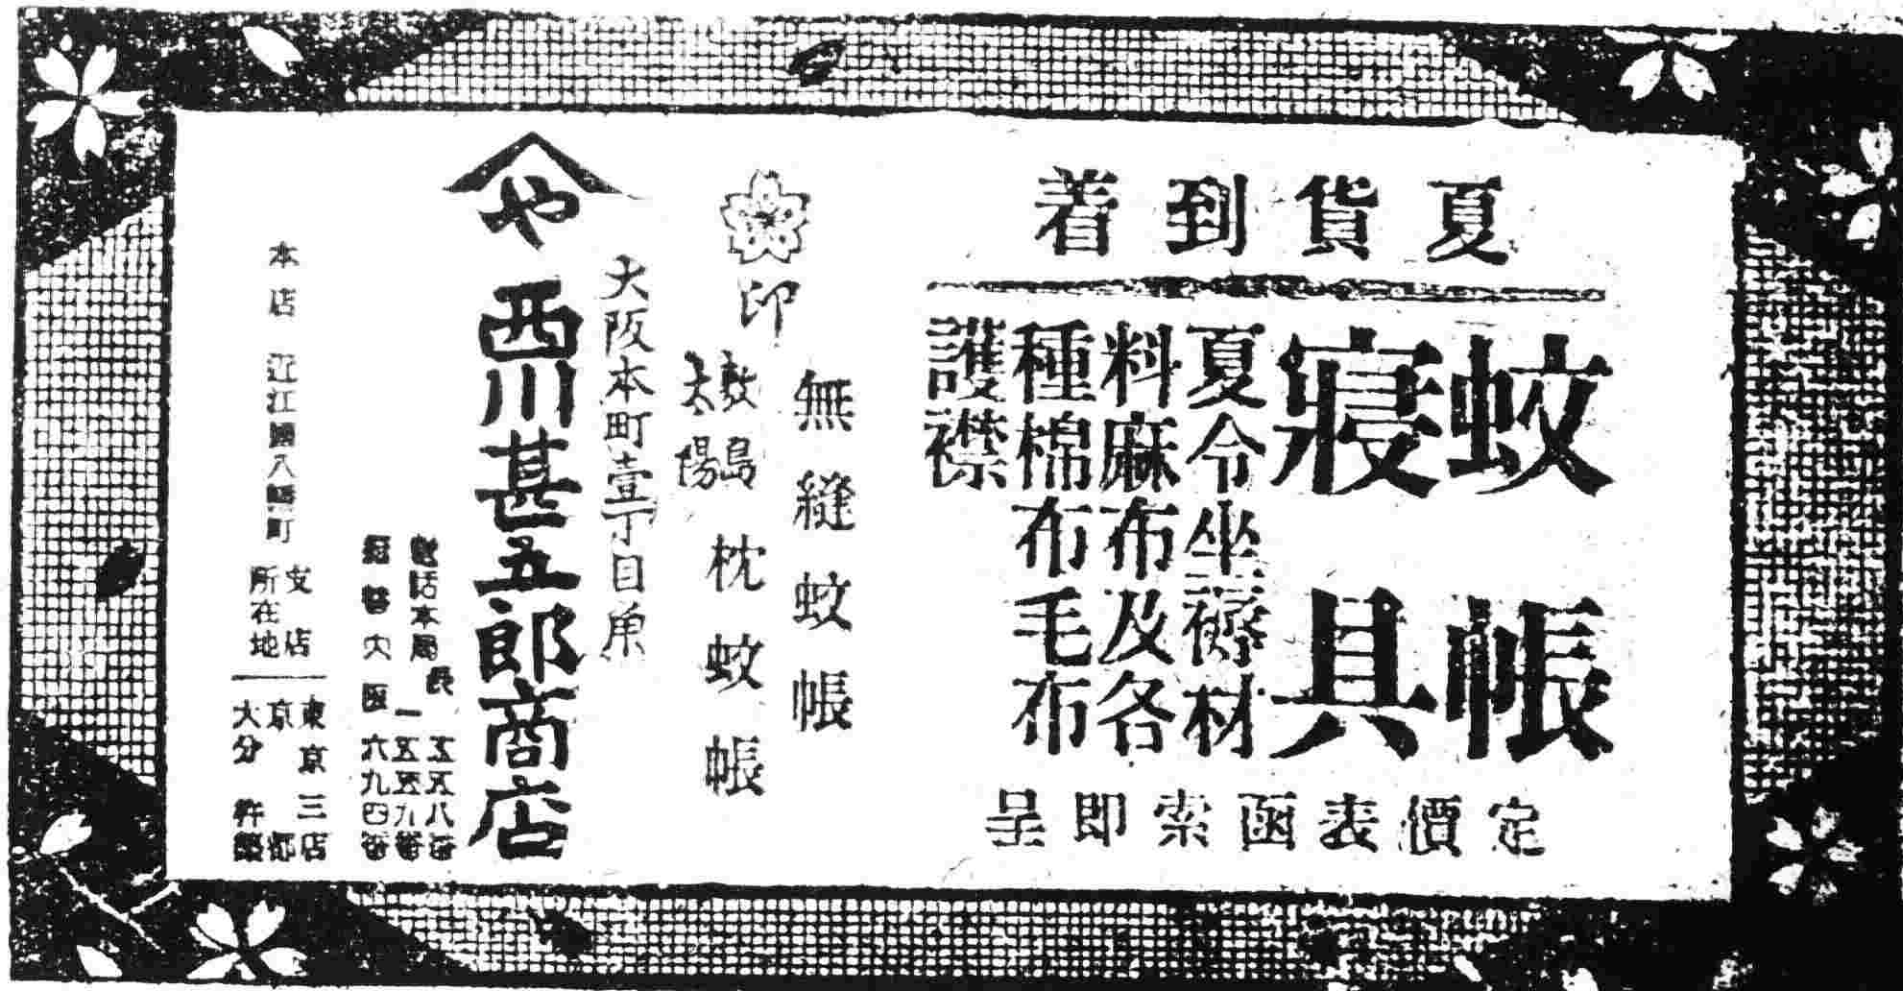 夏貨到着
蚊帳
寢具
夏令坐褥材
料麻布及各
種棉布毛布
護襟
定價表函索即呈
印
無縫蚊帳
敷島
太陽
枕蚊帳
大阪本町壹丁目角
や
西川甚五郎商店
電話本局
長
五五八番
一五五九番
振替大阪六九四番
本店 近江國八幡町
支店
所在地
東京三店
京都
大分